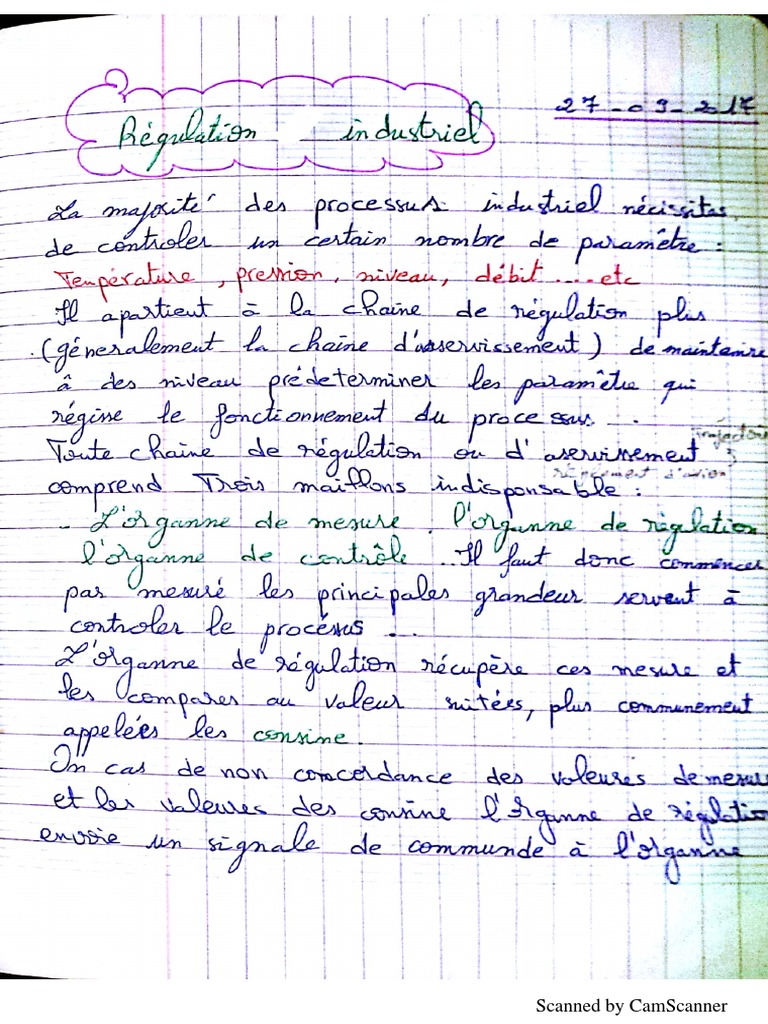 27-09-2017
Régulation industriel
La majorité des processus industriel nécissitas
de controler un certain nombre de paramètre :
Température , pression, niveau, débit ....etc
Il apartient à la chaine de régulation plus
(géneralement la chaine d'asservissement) de maintenire
à des niveau prédeterminer les paramêtre qui
régisse le fonctionnement du processus ...
Toute chaine de régulation ou d'aservissement
comprend Trois maillons indisponsable :
- L'organne de mesure . l'organne de régulation
l'organne de contrôle ..Il faut donc commencer
par mesuré les principales grandeur servent à
controler le procéssus ...
L'organne de régulation récupère ces mesure et
les compares au valeur suitées, plus communement
appelées les consine.
En cas de non concordance des valeures de mesure
et les valeures des consine l'organne de régulation
envoie un signale de communde à l'organne
Scanned by CamScanner